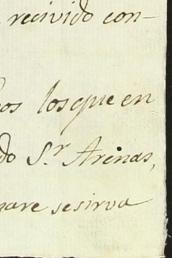 recivido con-
os los que en
do S.r Arenas,
are se sirva